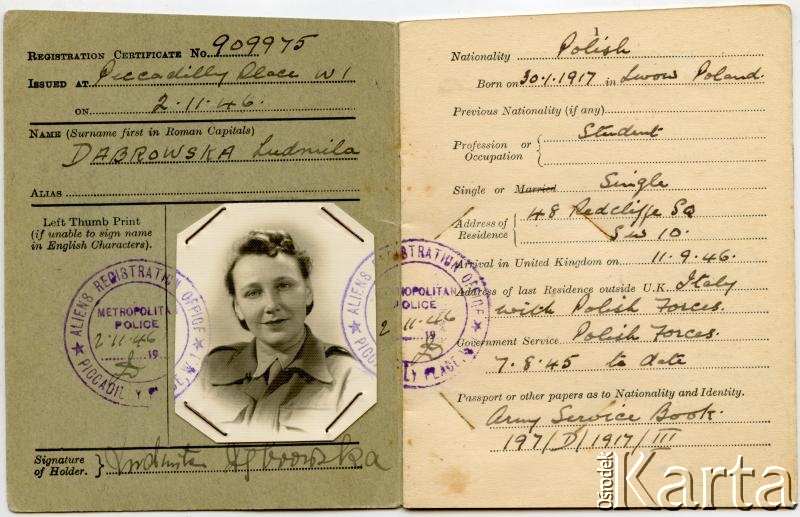 REGISTRATION CERTIFICATE No. 909975
ISSUED AT Piccadilly Place W1
ON 2.11.46.
NAME (Surname first in Roman Capitals)
DABROWSKA Ludmila
ALIAS
Left Thumb Print
(if unable to sign name
in English Characters).
ALIENS REGISTRATION OFFICE
METROPOLITAN
POLICE
2.11.46
19
PICCADILLY PLACE, W.1
ALIENS REGISTRATION OFFICE
METROPOLITAN
POLICE
2 11 46
19
PICCADILLY PLACE W.1
Signature
of Holder. Ludmila Dąbrowska
1
Nationality Polish
Born on 30.1.1917 in Lwow Poland.
Previous Nationality (if any)
Profession or
Occupation Student
Single or Married Single
Address of
Residence 48 Redcliffe Sq
SW 10.
Arrival in United Kingdom on 11.9.46.
Address of last Residence outside U.K. Italy
with Polish Forces.
Government Service Polish Forces.
7.8.45 to date
Passport or other papers as to Nationality and Identity.
Army Service Book.
197/D/1917/III
Ośrodek
Karta